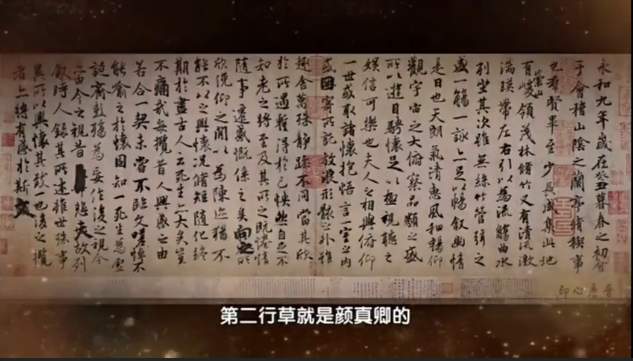 永和九年歲在癸丑暮春之初會
于會稽山陰之蘭亭脩稧事
也羣賢畢至少長咸集此地
有崇山峻領茂林脩竹又有清流激
湍暎帶左右引以為流觴曲水
列坐其次雖無絲竹管弦之
盛一觴一詠亦足以暢敘幽情
是日也天朗氣清惠風和暢仰
觀宇宙之大俯察品類之盛
所以遊目騁懷足以極視聽之
娛信可樂也夫人之相與俯仰
一世或取諸懷抱悟言一室之內
或因寄所託放浪形骸之外雖
趣舍萬殊靜躁不同當其欣
於所遇蹔得於己怏然自足不
知老之將至及其所之既惓情
隨事遷感慨係之矣向之所
欣俛仰之閒以為陳迹猶不
能不以之興懷況脩短隨化終
期於盡古人云死生亦大矣豈
不痛哉每攬昔人興感之由
若合一契未嘗不臨文嗟悼不
能喻之於懷固知一死生為虛
誕齊彭殤為妄作後之視今
亦由今之視昔悲夫故列
敘時人錄其所述雖世殊事
異所以興懷其致一也後之攬
者亦將有感於斯文
第二行草就是颜真卿的